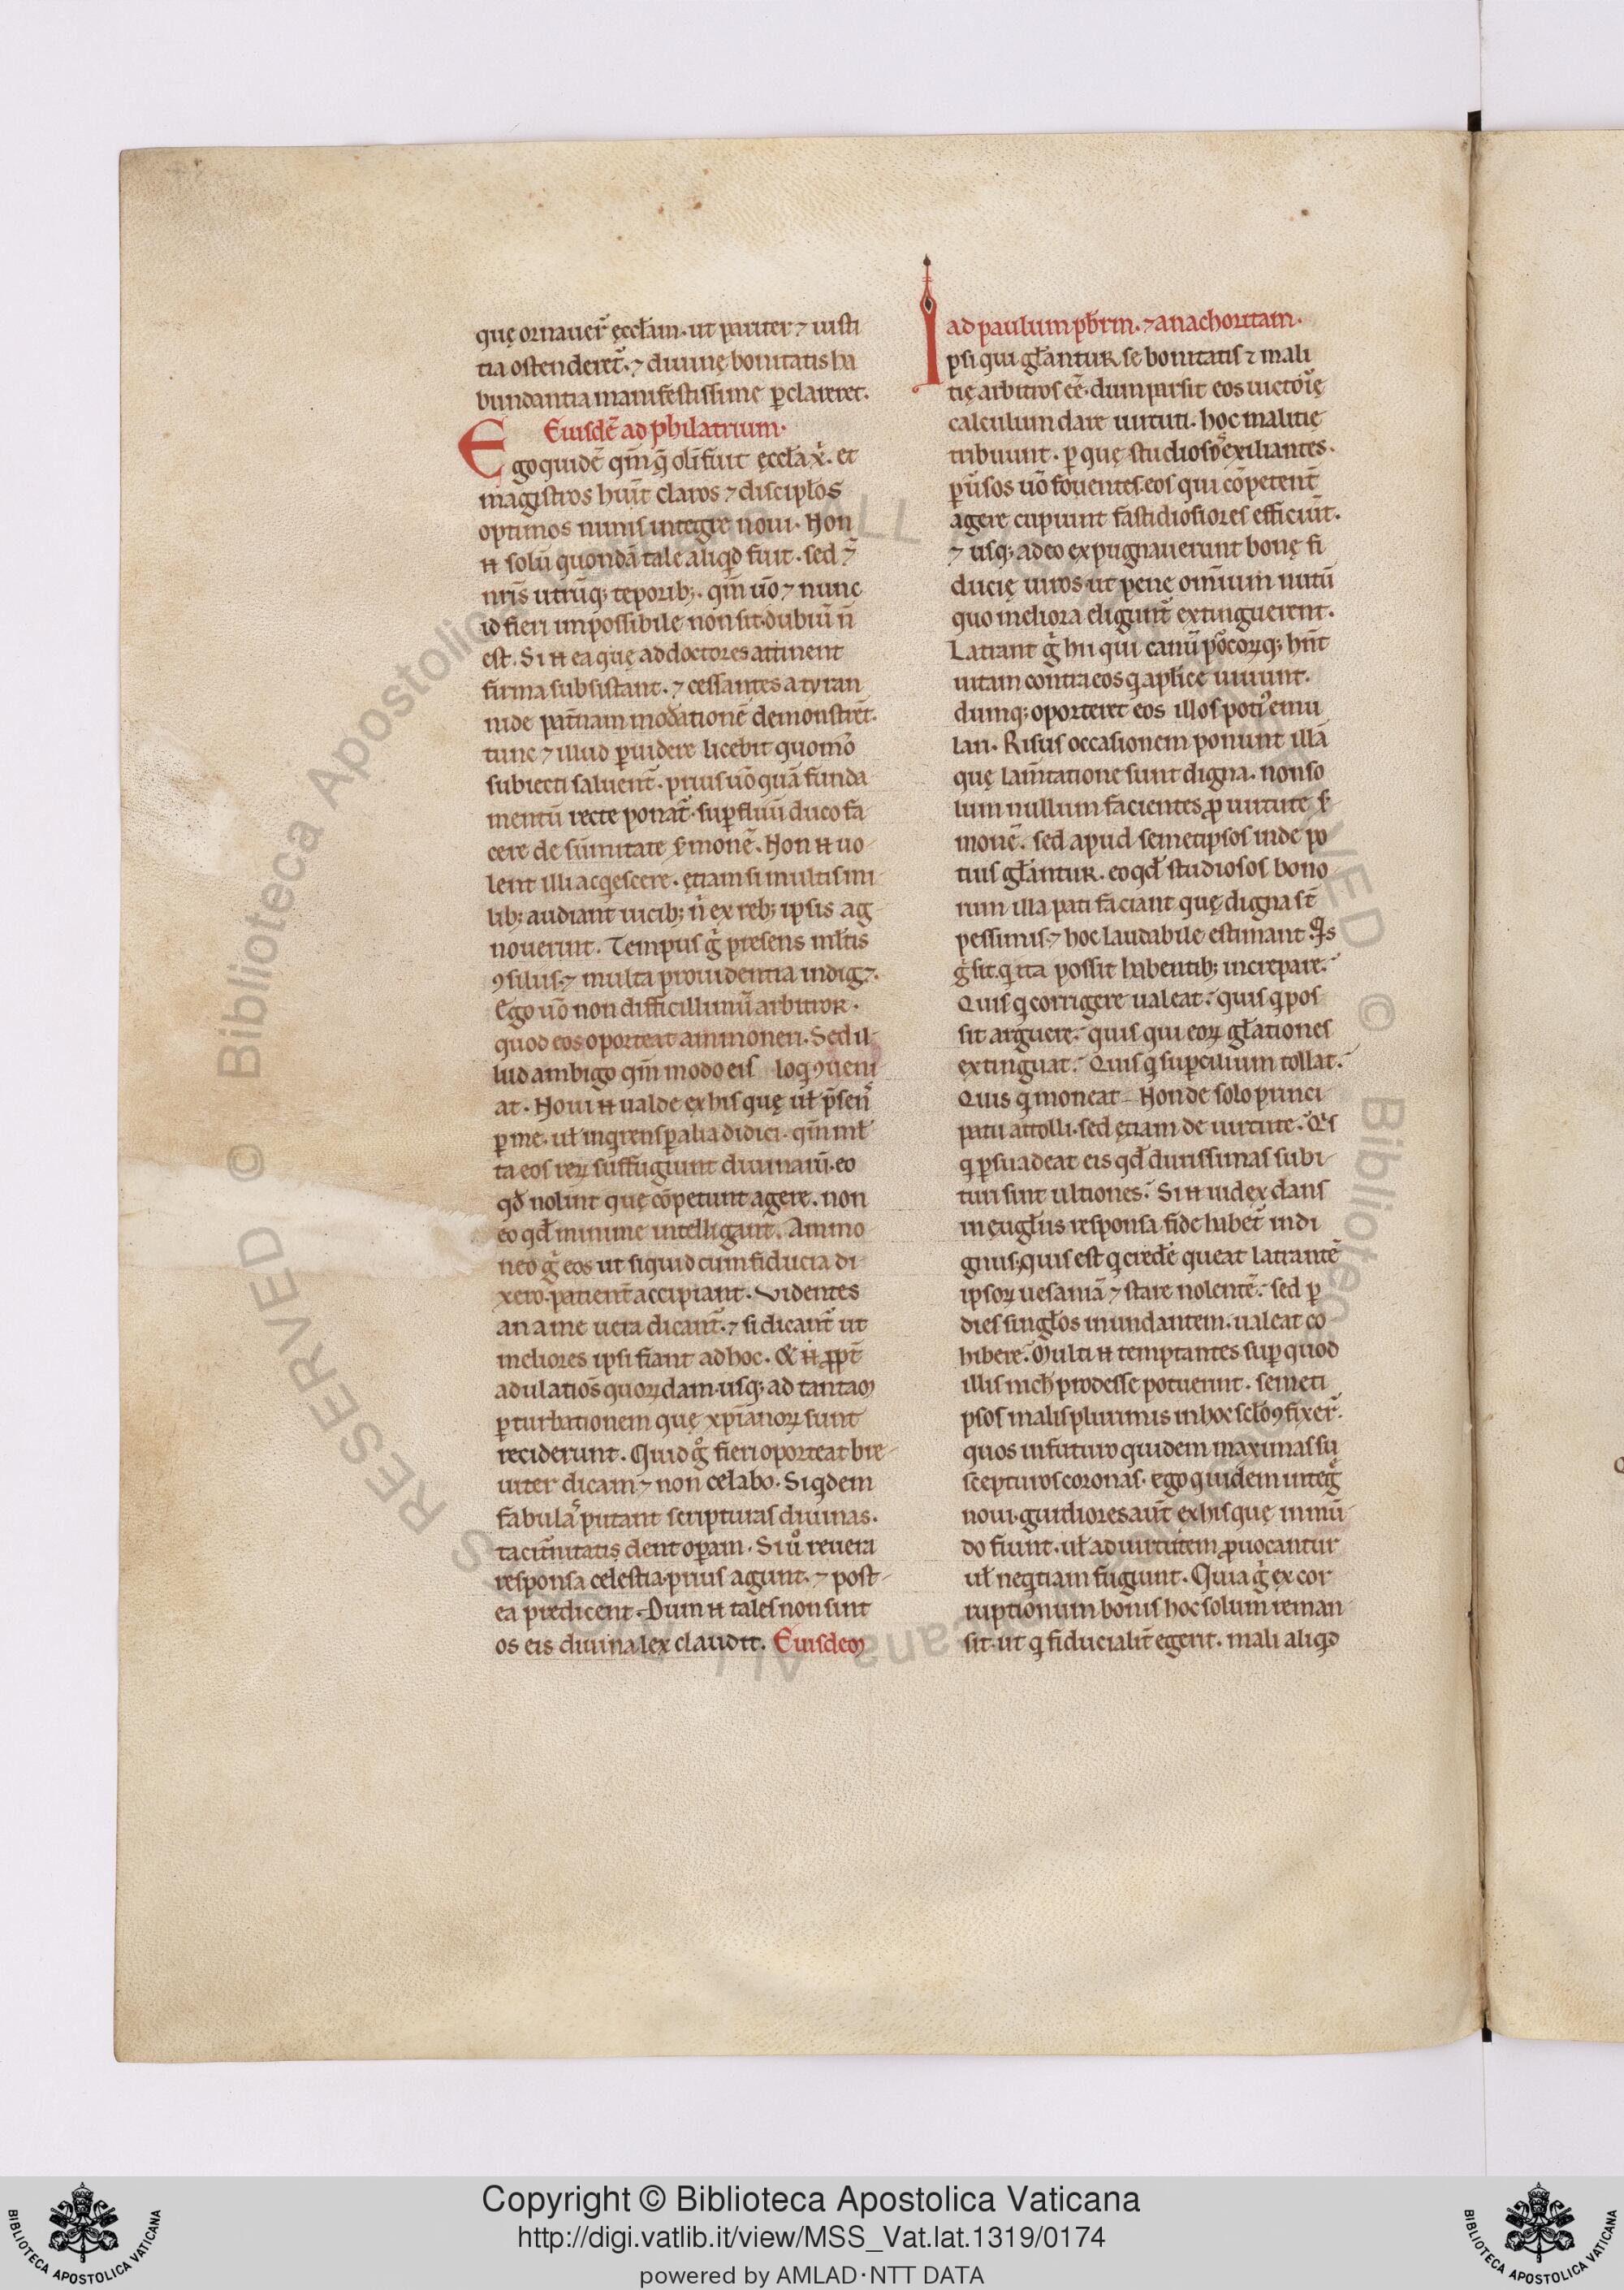 quę ornauer̄ ęccłam. ut pariter ⁊ iusti
tia ostenderet᷑. ⁊ diuinę bonitatis ha
bundantia manifestissime ꝑclareret.
Eiusdē ad philatrium.
Ego quidē qm̄ q̄ oli᷑ fuit ęccła x̄. et
magistros hūit claros ⁊ disciplos
optimos nimis integre noui. Non
n̄ solū quondā tale aliqd fuit. sed ⁊
nrīs utrūq; teporib;. qm̄ uō ⁊ nunc
id fieri impossibile non sit. dubiū ñ
est. Si n̄ ea quę ad doctores attinent
firma subsistant. ⁊ cessantes a tyran
nide pat̄nam mod̄ationē demonstrēt.
tunc ⁊ illud ꝑuidere licebit quomō
subiecti saluent᷑. prius uō quā funda
mentū recte ponat᷑. suꝑfluū duco fa
cere de sūmitate s̄monē. Non n̄ uo
lent illi acqescere. ętiam si multis mi
lib; audiant uicib; ñ ex reb; ipsis ag
nouerint. Tempus g̊ presens mltis
ꝯsiliis. ⁊ multa prouidentia indig⁊.
Ego uō non difficillimū arbitror.
quod eos oporteat ammoneri. Sed il
lud ambigo qm̄ modo eis loqi ꝯueni
at. Noui n̄ ualde ex his quę uł p̄sen᷑
ꝑ me. uł inqrens ꝑ alia didici. qm̄ mł
ta eos reꝝ suffugiunt diuinaꝝ. eo
qđ nolint quę cōpetunt agere. non
eo qđ minime intelligant. Ammo
neo g̊ eos ut siquid cum fiducia di
xero. patient᷑ accipiant. Videntes
an a me uera dicant᷑. ⁊ si dicant᷑ ut
meliores ipsi fiant ad hoc. & n̄ ꝓpt᷑
adulatiōs quoꝝdam. usq; ad tantaꝫ
ꝑturbationem quę xpīanoꝝ sunt
reciderunt. Quid g̊ fieri oporteat bre
uiter dicam ⁊ non celabo. Siqdem
fabulā putant scripturas diuinas.
tacit᷑nitatis dent oꝑam. Si uō reuera
responsa celestia. prius agunt. ⁊ post
ea predicent. Dum n̄ tales non sint
os eis diuina lex claudit. Eiusdeꝫ
ad paulum pb̄rm. ⁊ anachoritam.
Ipsi qui głantur se bonitatis ⁊ mali
tię arbitros ēē. dum iussit eos uictorię
calculum dare uirtuti. hoc malitię
tribuunt. ꝑ quę studiosos exiliantes.
ꝑūsos uō fouentes. eos qui cōpetent᷑
agere cupiunt fastidiosiores efficiūt.
⁊ usq; adeo expugnauerunt bonę fi
ducię uiros ut pene omīum nutū
quo meliora eligunt᷑ extinguerent.
Latrant g̊ hii qui canū porcoꝝq; hn̄t
uitam contra eos q aplice uiuunt.
dumq; oporteret eos illos poti᷒ emu
lari. Risus occasionem ponunt illā
quę lam̄tatione sunt digna. non so
lum nullum facientes ꝓ uirtute s̄
monē. sed apud semetipsos inde po
tius głantur. eo qđ studiosos bono
rum illa pati faciant quę digna st̄
pessimis. ⁊ hoc laudabile estimant. Qis
g̊ sit. q ita possit hubentib; increpare.
Quis q corrigere ualeat. quis q pos
sit arguere. quis qui eoꝝ głationes
extinguat. Quis q suꝑcilium tollat.
Quis q moneat. Non de solo princi
patu attolli. sed ętiam de uirtute. Qis
q ꝑsuadeat eis qđ durissimas subi
turi sint ultiones. Si n̄ iudex dans
in ęuglīis responsa fide hubet᷑ indi
gnus. quis est q credē queat latrantē
ipsoꝝ uesaniā ⁊ stare nolentē. sed ꝑ
dies singłos inundantem. ualeat co
hibere. Multi n̄ temptantes suꝑ quod
illis nichł prodesse potuerint. semeti
psos malis plurimis in hoc scło ꝯfixer̄.
quos in futuro quidem maximas su
scepturos coronas. ego quidem integ̊
noui. gutdiores aut̄ ex his quę in mū
do fiunt. uł ad uirtutem ꝓuocantur
uł neqtiam fugiunt. Quia g̊ ex cor
ruptionum bonis hoc solum reman
sit. ut q fiducialit᷑ egerit. mali aliqd
Copyright © Biblioteca Apostolica Vaticana
http://digi.vatlib.it/view/MSS_Vat.lat.1319/0174
powered by AMLAD·NTT DATA